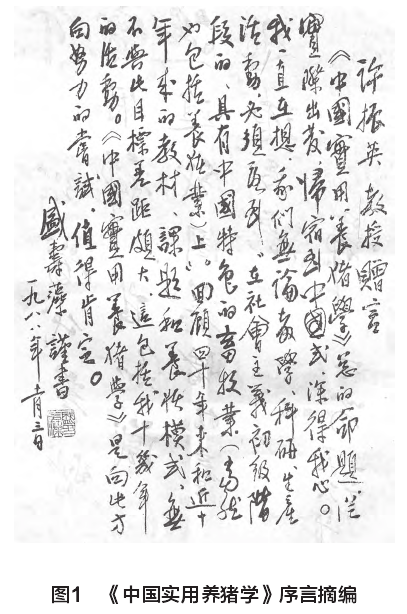 許振英教授贈言
《中國實用养猪學》的命題從
實際出發，歸宿到中國式深得我心。
我一直在想，我们無論教學科研生産
活動，必須到“在社會主義初级階
段的、具有中國特色的畜牧業（当然
包括养猪業）上”。回顧四十年来和近十
年来的教材、課題和养猪模式，無
不與此目標差距颇大，這包括我十幾年
的活動。《中國實用养猪學》是向此方
向努力的嘗試，值得肯定。
盛 謹書
一九八八年 月三日
图1 《中国实用养猪学》序言摘编